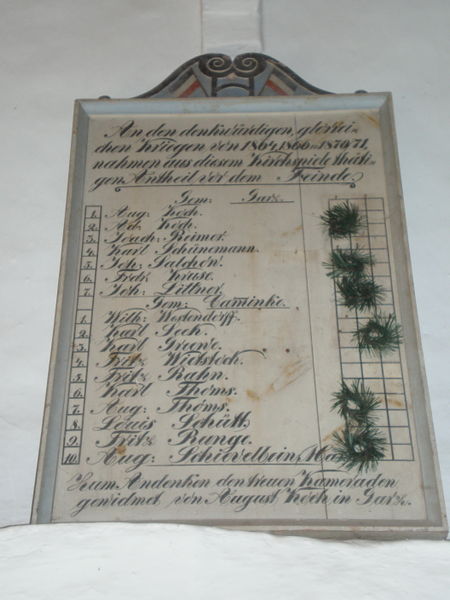 An den denkwürdigen, glorrei-
chen Kriegen von 1864, 1866 u. 1870/71,
nahmen aus diesem Kirchspiele thäti-
gen Antheil vor dem Feinde.
Gem: Garz.
1. Aug: Koch.
2. Ad. Koch.
3. Joach: Reimer.
4. Karl Schünemann.
5. Joh: Salchow.
6. Fredr. Kruse.
7. Joh: Littner.
Gem: Caminke.
1. Wilh: Westendorff.
2. Karl Loch.
3. Karl
4. Fritz Wickstock.
5. Fritz Rahn.
6. Karl Thoms.
7. Aug: Thoms.
8. Louis Schütt.
9. Fritz Runge.
10. Aug: Schievelbein,
Zum Andenken den treuen Kameraden
gewidmet von August Koch in Garz.